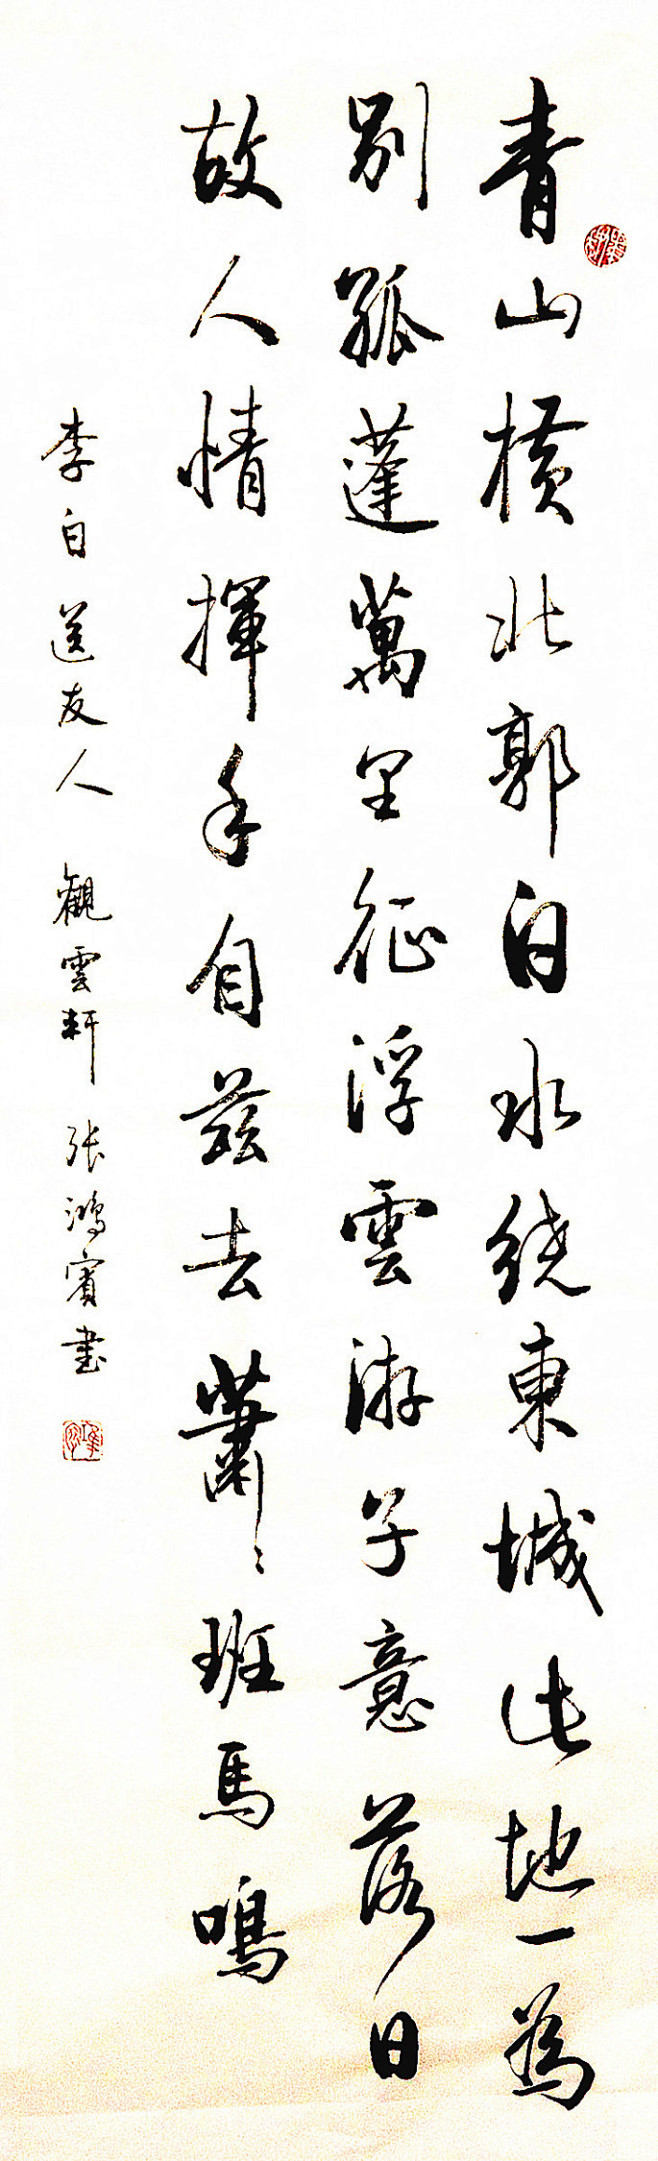 青山横北郭白水绕東城此地一為
别孤蓬萬里征浮雲游子意落日
故人情揮手自茲去蕭〻班馬鳴
李白送友人 觀雲軒 张鸿賓書